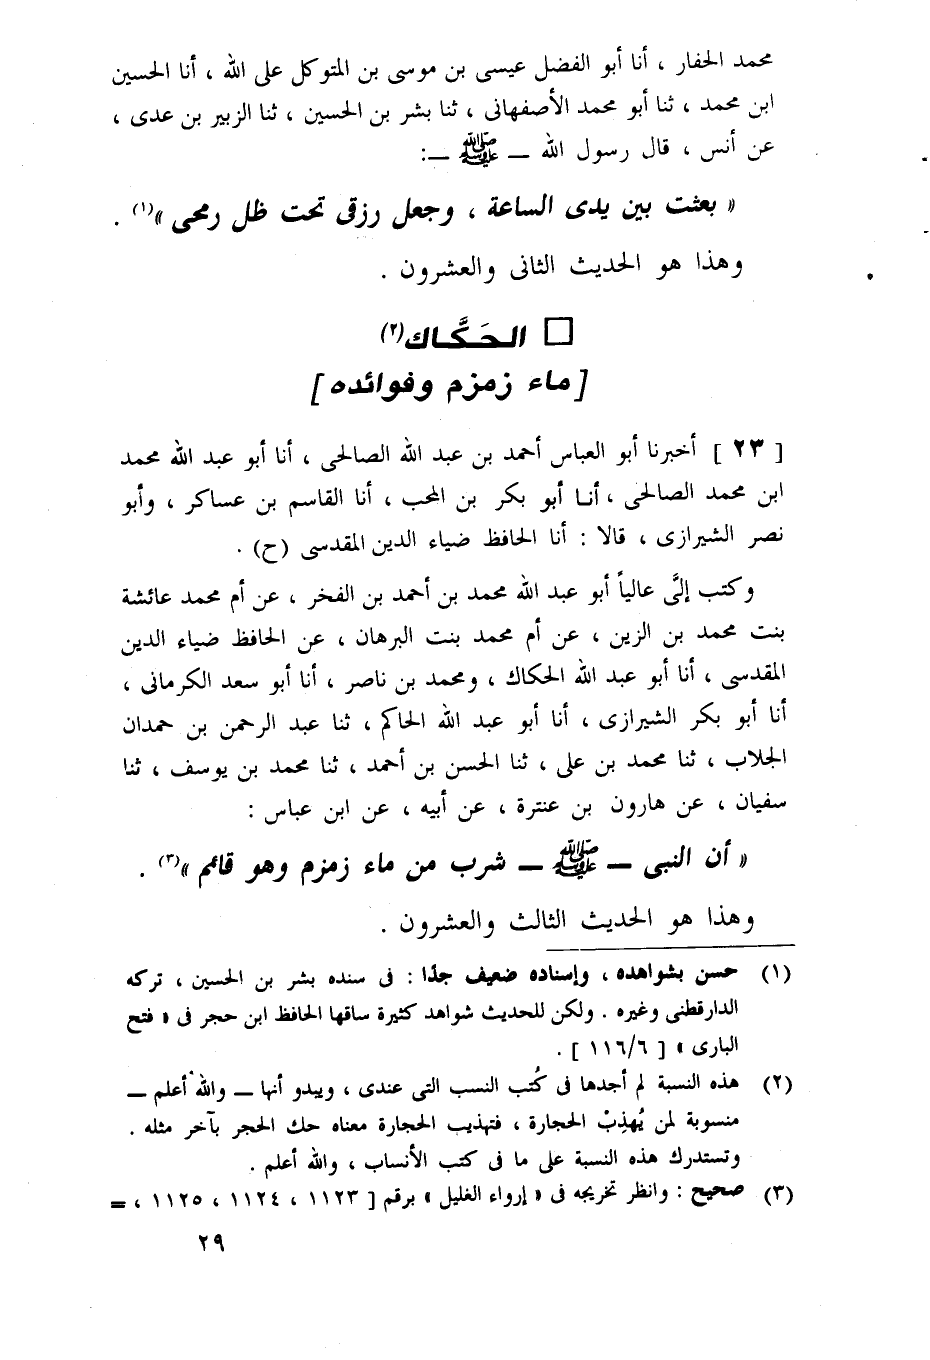 محمد الحفار ، أنا أبو الفضل عيسى بن موسى بن المتوكل على الله ، أنا الحسين
ابن محمد ، ثنا أبو محمد الأصفهانى ، ثنا بشر بن الحسين ، ثنا الزبير بن عدى ،
عن أنس ، قال رسول الله ــ ﷺ ــ :
« بعثت بين يدى الساعة ، وجعل رزقى تحت ظل رمحى »(١) .
وهذا هو الحديث الثانى والعشرون .
□ الـحَـكَّـاك(٢)
[ماء زمزم وفوائده]
[ ٢٣ ] أخبرنا أبو العباس أحمد بن عبد الله الصالحى ، أنا أبو عبد الله محمد
ابن محمد الصالحى ، أنـا أبو بكر بن المحب ، أنا القاسم بن عساكر ، وأبو
نصر الشيرازى ، قالا : أنا الحافظ ضياء الدين المقدسى (ح) .
وكتب إلىَّ عالياً أبو عبد الله محمد بن أحمد بن الفخر ، عن أم محمد عائشة
بنت محمد بن الزين ، عن أم محمد بنت البرهان ، عن الحافظ ضياء الدين
المقدسى ، أنا أبو عبد الله الحكاك ، ومحمد بن ناصر ، أنا أبو سعد الكرمانى ،
أنا أبو بكر الشيرازى ، أنا أبو عبد الله الحاكم ، ثنا عبد الرحمن بن حمدان
الجلاب ، ثنا محمد بن على ، ثنا الحسن بن أحمد ، ثنا محمد بن يوسف ، ثنا
سفيان ، عن هارون بن عنترة ، عن أبيه ، عن ابن عباس :
« أن النبى ــ ﷺ ــ شرب من ماء زمزم وهو قائم »(٣) .
وهذا هو الحديث الثالث والعشرون .
(١) حسن بشواهده ، وإسناده ضعيف جدًا : فى سنده بشر بن الحسين ، تركه
الدارقطنى وغيره . ولكن للحديث شواهد كثيرة ساقها الحافظ ابن حجر فى « فتح
البارى » [ ١١٦/٦ ] .
(٢) هذه النسبة لم أجدها فى كُتب النسب التى عندى ، ويبدو أنها ــ والله أعلم ــ
منسوبة لمن يُهذِبْ الحجارة ، فتهذيب الحجارة معناه حك الحجر بآخر مثله .
وتستدرك هذه النسبة على ما فى كتب الأنساب ، والله أعلم .
(٣) صحيح : وانظر تخريجه فى « إرواء الغليل » برقم [ ١١٢٣ ، ١١٢٤ ، ١١٢٥ ، =
٢٩